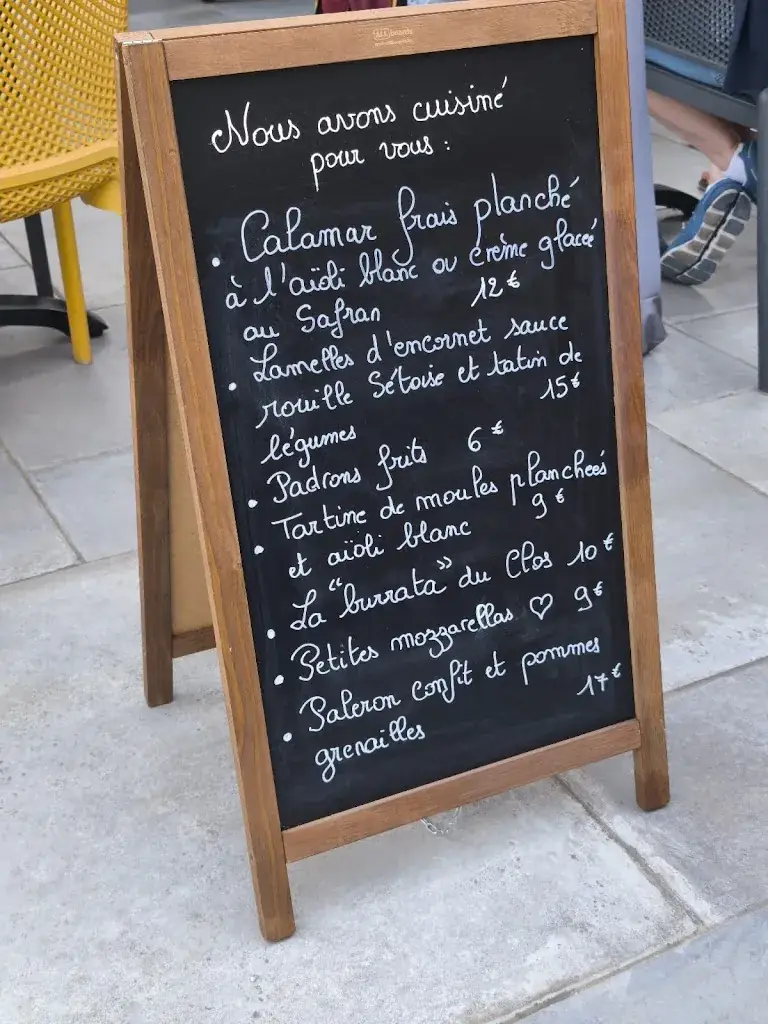 Nous avons cuisiné
pour vous :
• Calamar frais planché
à l'aïoli blanc ou crème glacée
au Safran 12 €
• Lamelles d'encornet sauce
rouille Sétoise et tatin de
légumes 15 €
• Padrons frits 6 €
• Tartine de moules planchées
et aïoli blanc 9 €
• La "burrata" du Clos 10 €
• Petites mozzarellas ♡ 9 €
• Paleron confit et pommes
grenailles 17 €